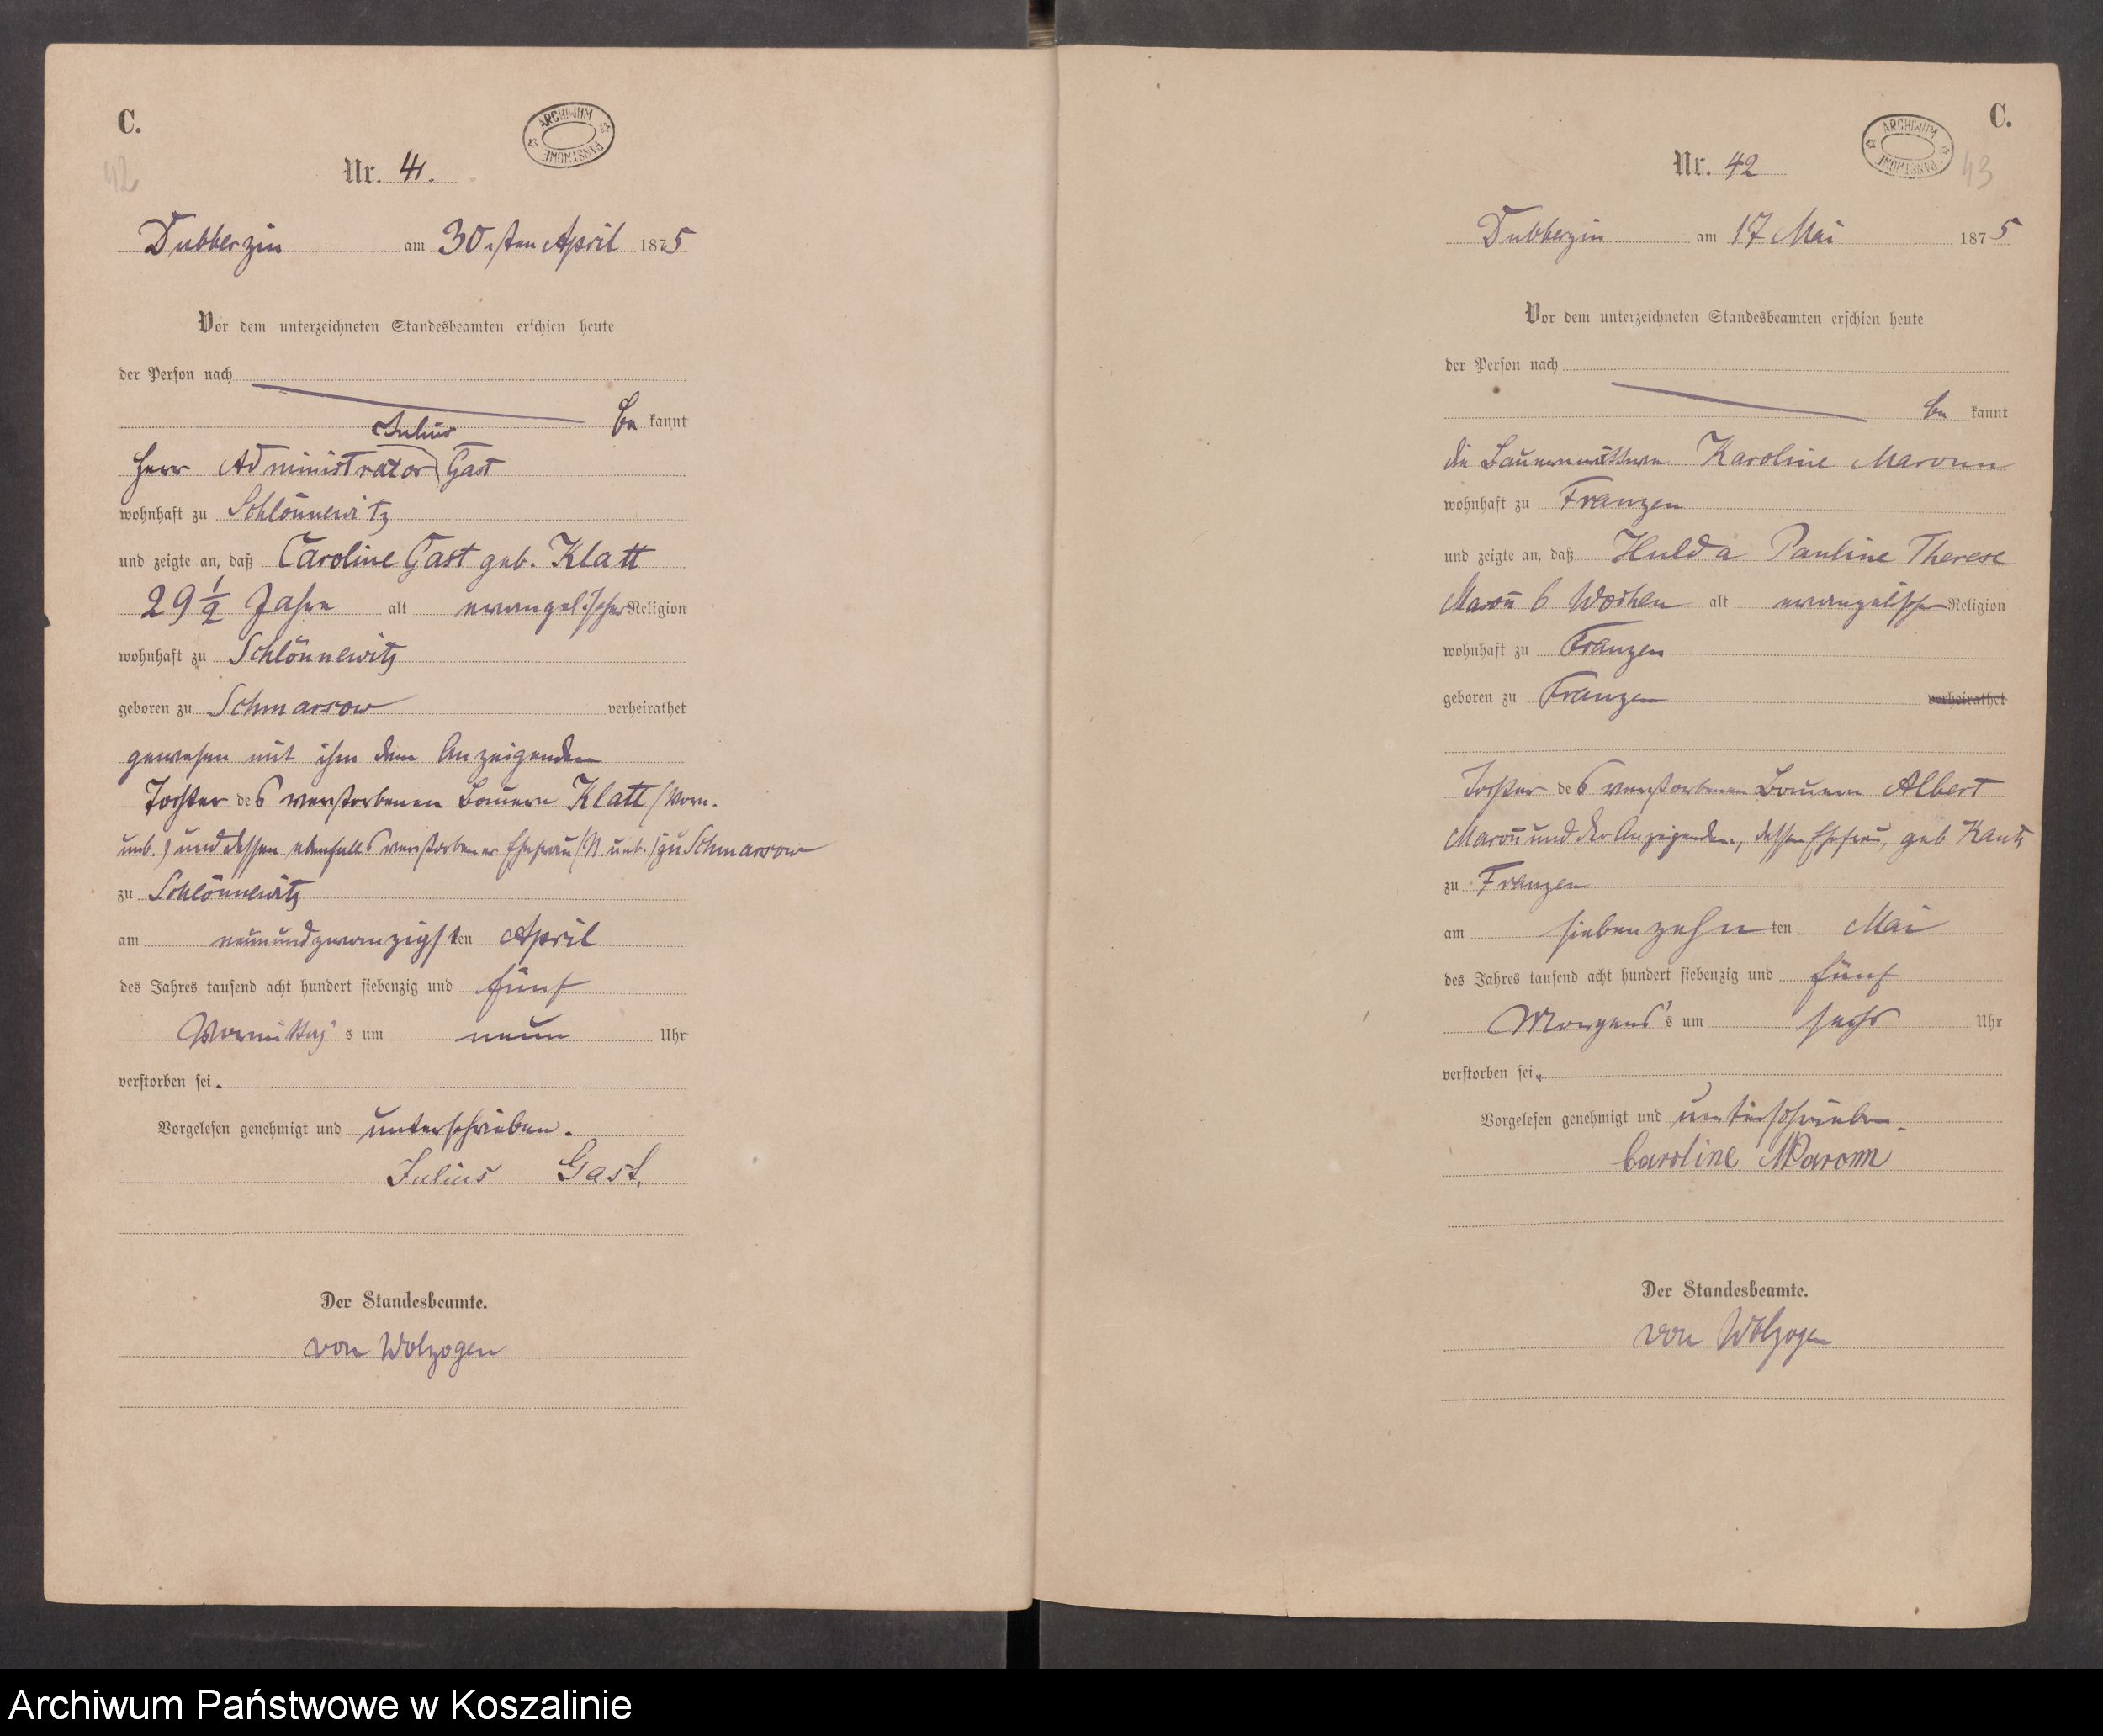 C.
ARCHIWUM PAŃSTWOWE
42
Nr. 41.
Dubberzin am 30sten April 1875
Vor dem unterzeichneten Standesbeamten erschien heute
der Person nach
be kannt
Julius
Herr Administrator Gast
wohnhaft zu Schlönnewitz
und zeigte an, daß Caroline Gast geb. Klatt
29 1/2 Jahre alt evangelischer Religion
wohnhaft zu Schlönnewitz
geboren zu Schmarsow verheirathet
gewesen mit ihm dem Anzeigenden
Tochter des verstorbenen Bauern Klatt (Vorn.
unb.) und dessen ebenfalls verstorbener Ehefrau (N. unb.) zu Schmarsow
zu Schlönnewitz
am neunundzwanzigsten April
des Jahres tausend acht hundert siebenzig und fünf
Vormittag's um neun Uhr
verstorben sei.
Vorgelesen genehmigt und unterschrieben.
Julius Gast.
Der Standesbeamte.
von Wolzogen
C.
ARCHIWUM PAŃSTWOWE
43
Nr. 42
Dubberzin am 17 Mai 1875
Vor dem unterzeichneten Standesbeamten erschien heute
der Person nach
be kannt
die Karoline Maronn
wohnhaft zu Franzen
und zeigte an, daß Hulda Pauline Therese
Maron̄ 6 Wochen alt evangelischer Religion
wohnhaft zu Franzen
geboren zu Franzen verheirathet
Tochter des verstorbenen Bauern Albert
Maron̄ und der Anzeigenden, dessen Ehefrau, geb Kantz
zu Franzen
am siebenzehnten Mai
des Jahres tausend acht hundert siebenzig und fünf
Morgens's um sechs Uhr
verstorben sei.
Vorgelesen genehmigt und unterschrieben.
Caroline Maronn
Der Standesbeamte.
von Wolzogen
Archiwum Państwowe w Koszalinie